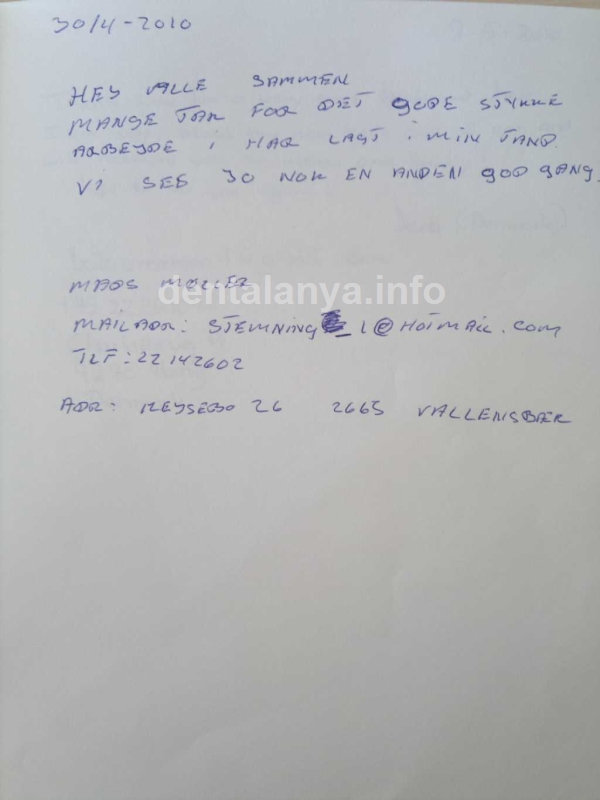 30/4-2010
HEY ALLE SAMMEN
MANGE TAK FOR DET GODE STYKKE
ARBEJDE i HAR LAGT i MIN TAND.
Vi SES JO NOK EN ANDEN GOD GANG.
MADS MØLLER
dentalanya.info
MAILADR: STEMNING_1@HOTMAIL.COM
TLF: 22142602
ADR: REJSEBO 26 2665 VALLENSBÆK